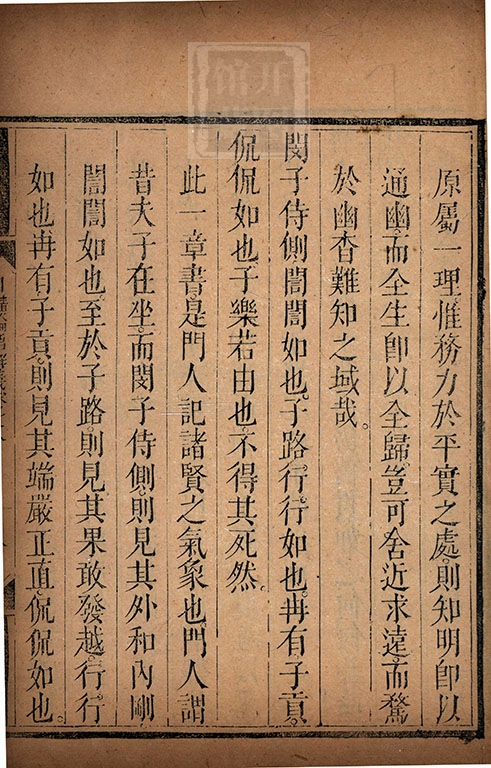 原屬一理惟務力於平實之處則知明卽以
通幽而全生卽以全歸豈可舍近求遠而騖
於幽杳難知之域哉
閔子侍側誾誾如也子路行行如也冉有子貢
侃侃如也子樂若由也不得其死然
此一章書是門人記諸賢之氣象也門人謂
昔夫子在坐而閔子侍側則見其外和內剛
誾誾如也至於子路則見其果敢發越行行
如也冉有子貢則見其端嚴正直侃侃如也